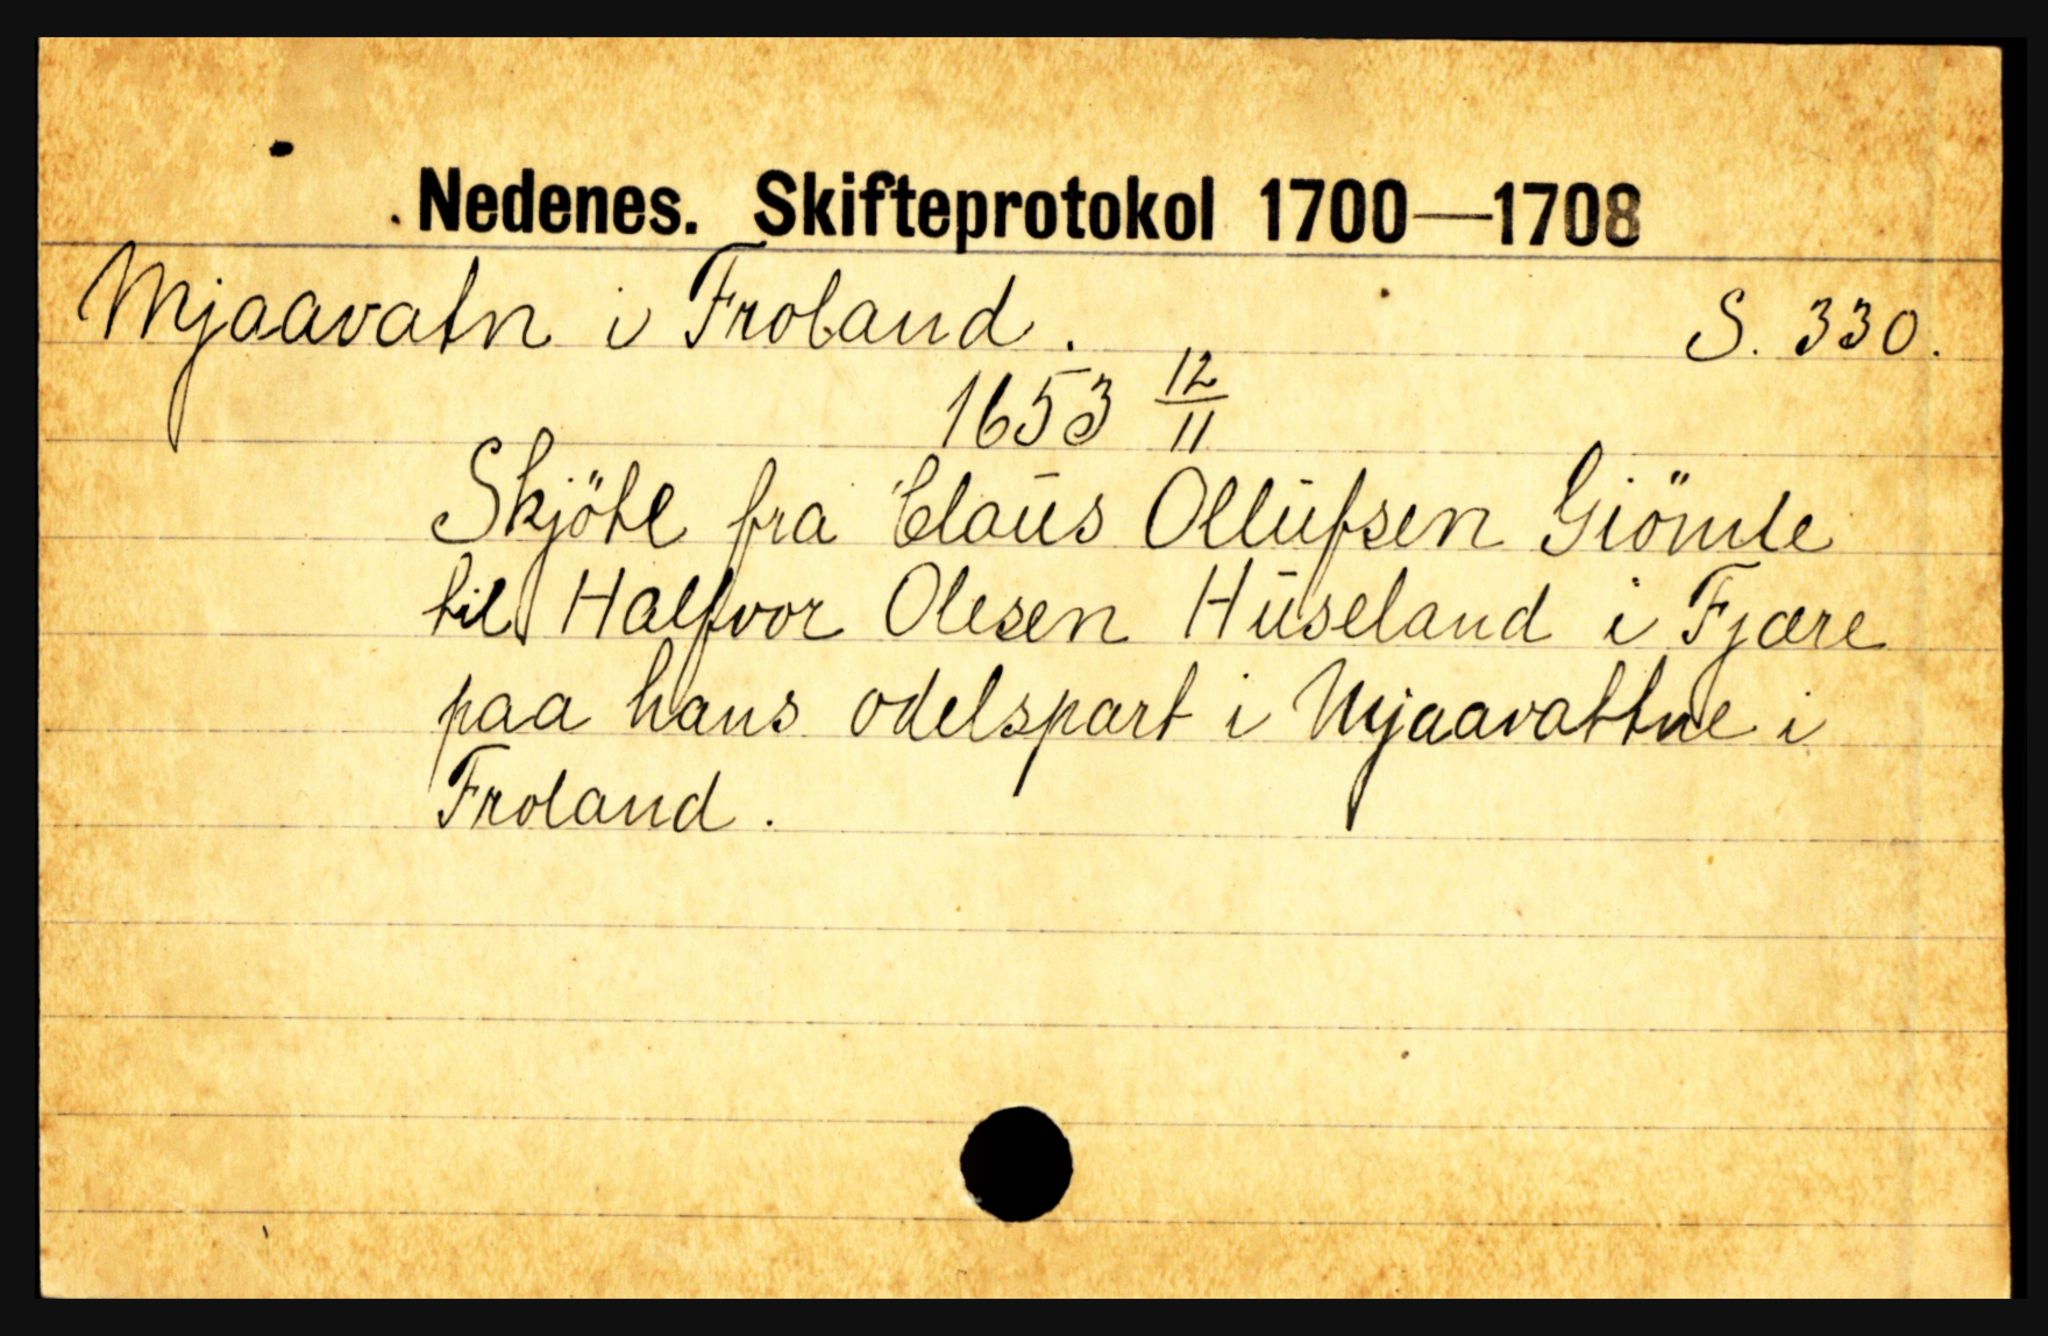 Nedenes. Skifteprotokol 1700—1708
Mjaavatn i Froland. S. 330.
1653 12/11
Skjöte fra Claus Ollufsen Giömle
til Halfvor Olesen Huseland i Fjære
paa hans odelspart i Mjaavattne i
Froland.